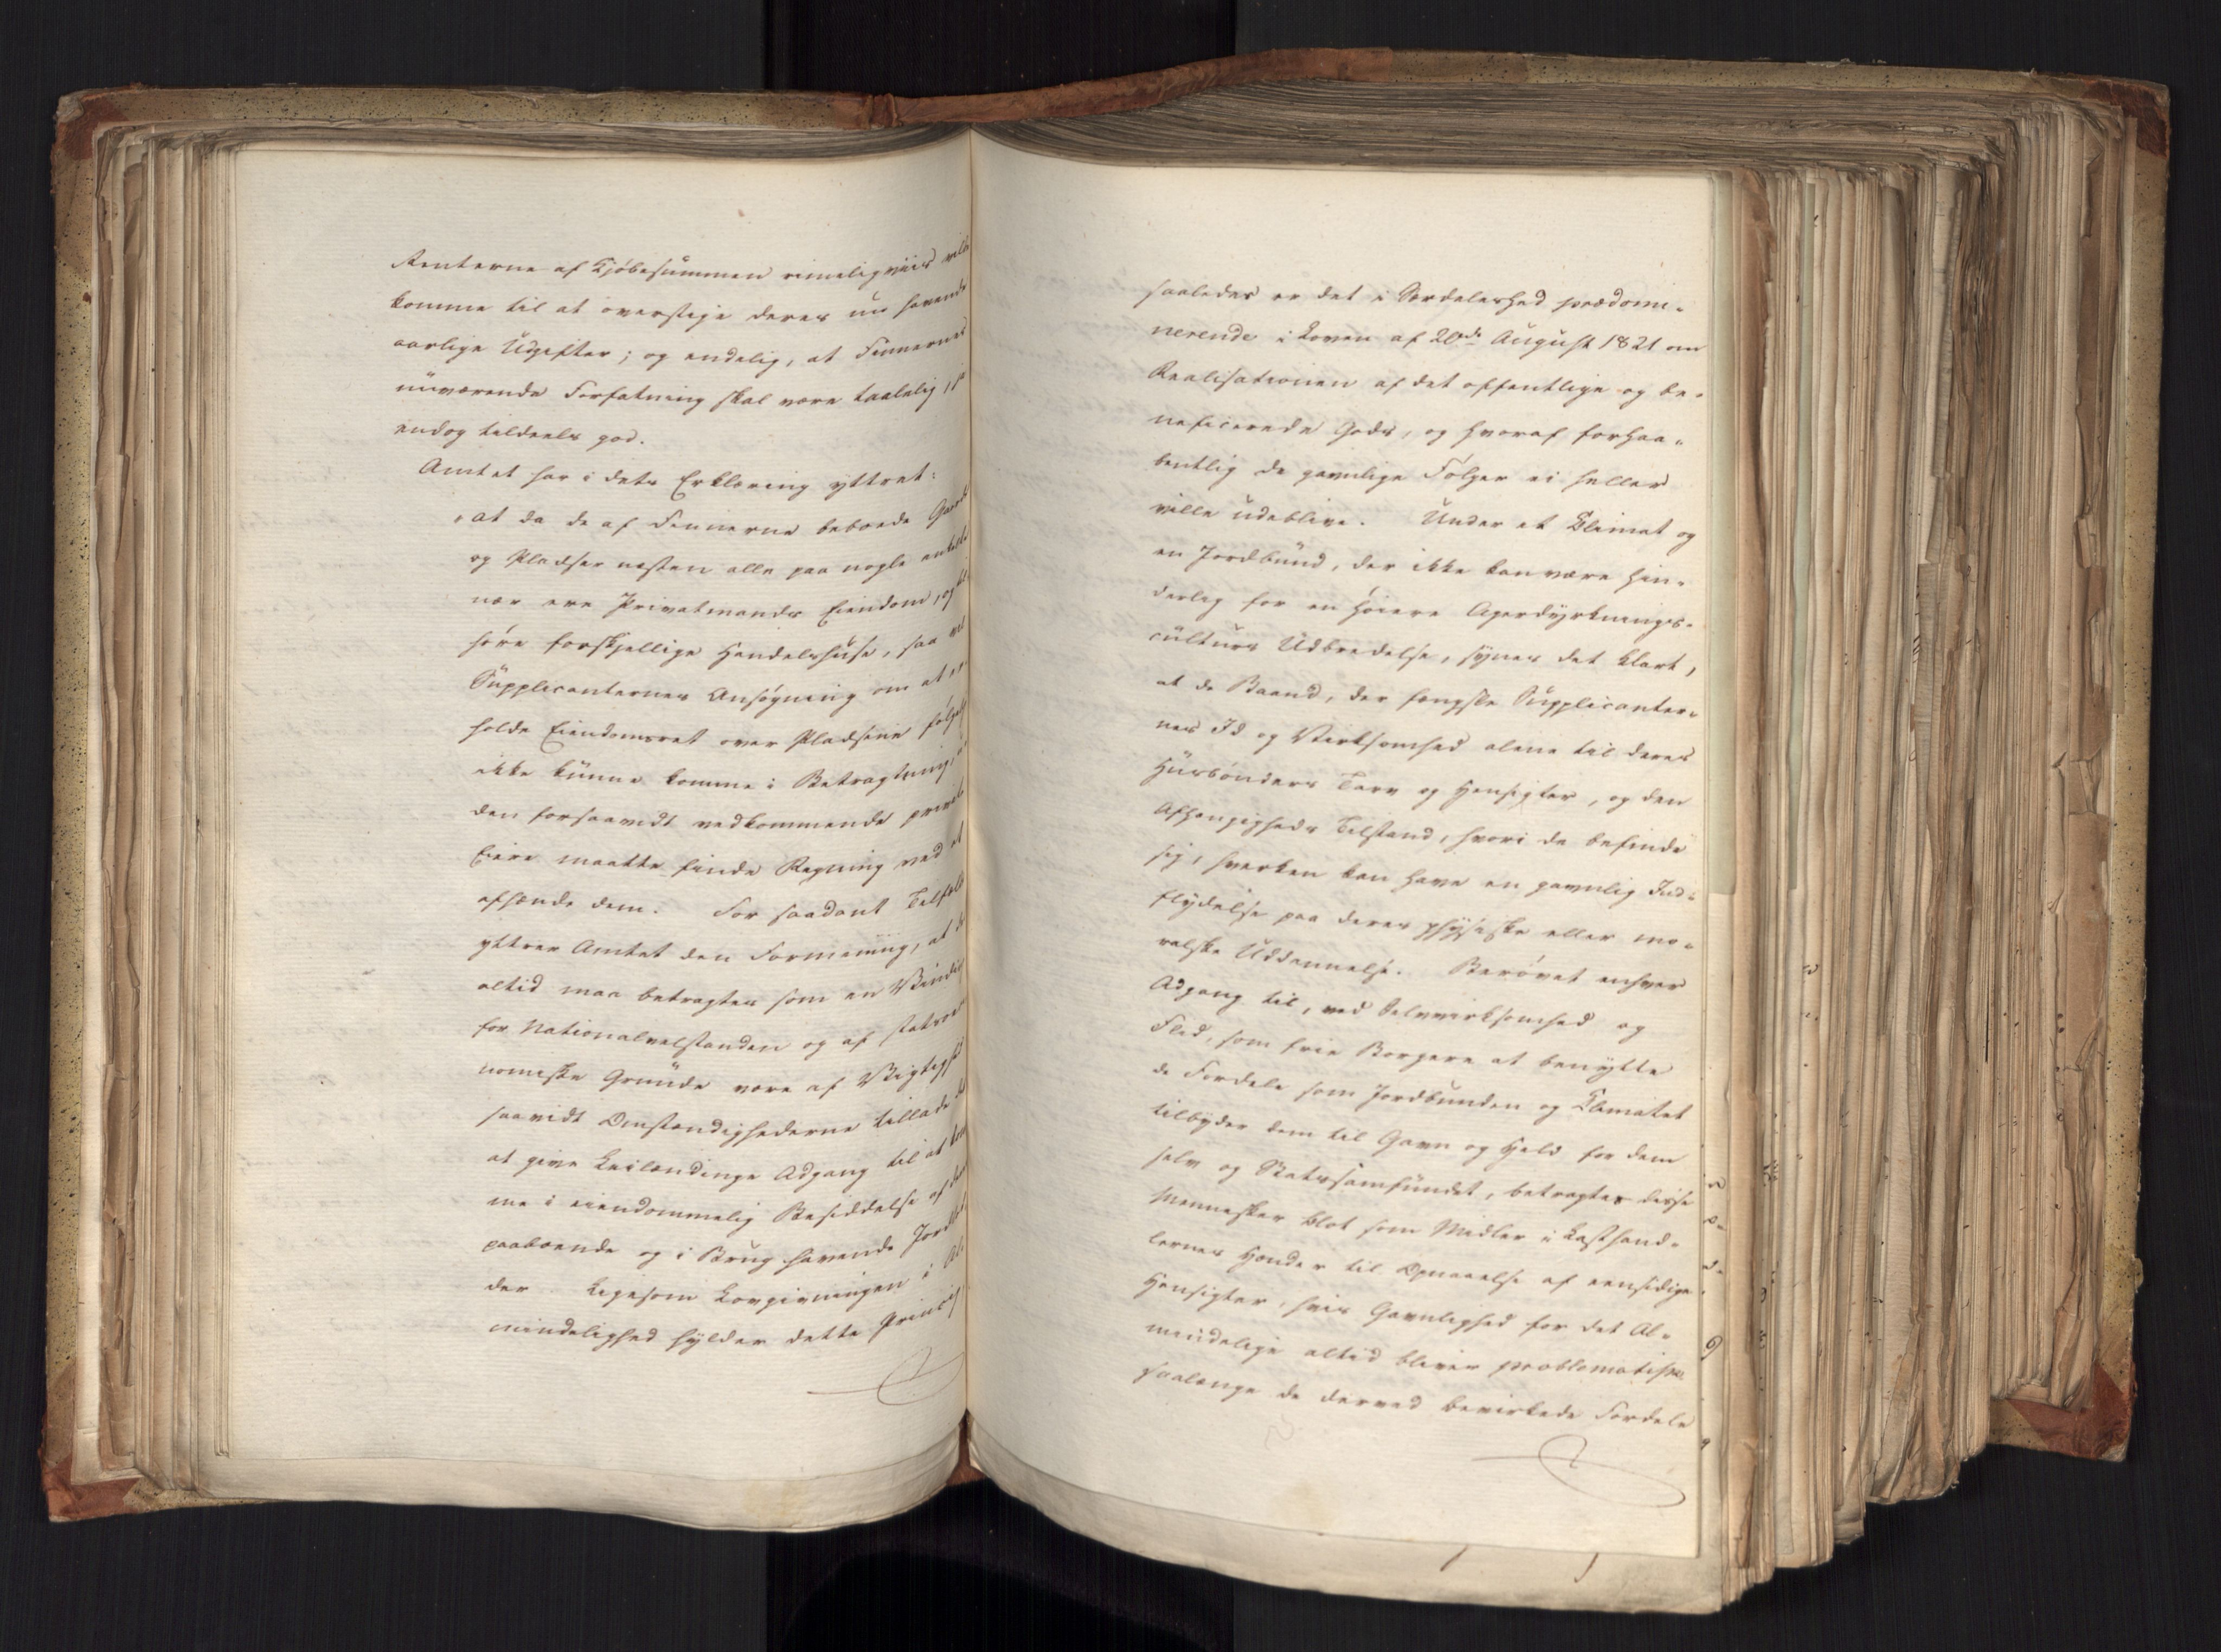 Renterne af Kjöbesummen rimeligviis vilde
komme til at overstige deres nu havende
aarlige Udgifter; og endelig, at Finnernes
nuværende Forfatning skal være taalelig, ja
endog tildeels god.
Amtet har i dets Erklæring yttret:
„at da de af Finnerne beboede Gaarde
og Pladser næsten alle paa nogle enkelte
nær ere Privatmands Eiendom, og til-
höre forskjellige Handelshuse, saa vil
Supplicanternes Ansögning om at er-
holde Eiendomsret over Pladsene fölgelig
ikke kunne komme i Betragtning, u-
den forsaavidt vedkommende private
Eiere maatte finde Regning ved at
afhænde dem. For saadant Tilfælde
yttrer Amtet den Formening, at det
altid maa betragtes som en Vinding
for Nationalvelstanden og af statsoeco-
nomiske Grunde være af Vigtighed
saavidt Omstændighederne tillade det
at give Leilændinge Adgang til at kom-
me i eiendommelig Besiddelse af deres
paaboende og i Brug havende Jordlod-
der. Ligesom Lovgivningen i Al-
mindelighed hylder dette Princip
saaledes er det i Særdeleshed prædomi-
nerende i Loven af 20de August 1821 om
Realisationen af det offentlige og be-
neficerede Gods, og hvoraf forhaa-
bentlig de gavnlige Fölger ei heller
ville udeblive. Under et Climat og
en Jordbund, der ikke kan være hin-
derlig for en höiere Agerdyrknings-
culturs Udbredelse, synes det klart,
at de Baand, der fængsle Supplicanter-
nes Id og Virksomhed alene til deres
Huusbönders Tarv og Hensigter, og den
Afhængigheds Tilstand, hvori de befinde
sig, hverken kan have en gavnlig Ind-
flydelse paa deres physiske eller mo-
ralske Uddannelse. Berövet enhver
Adgang til, ved Selvvirksomhed og
Flid, som frie Borgere at benytte
de Fordele som Jordbunden og Climatet
tilbyder dem til Gavn og Held for dem
selv og Statssamfundet, betragtes disse
Mennesker blot som Midler i Kjöbmand-
lernes Hænder til Opnaaelse af eensidige
Hensigter, hvis Gavnlighed for det Al-
mindelige altid bliver problematisk
saalænge de derved bevirkede Fordele